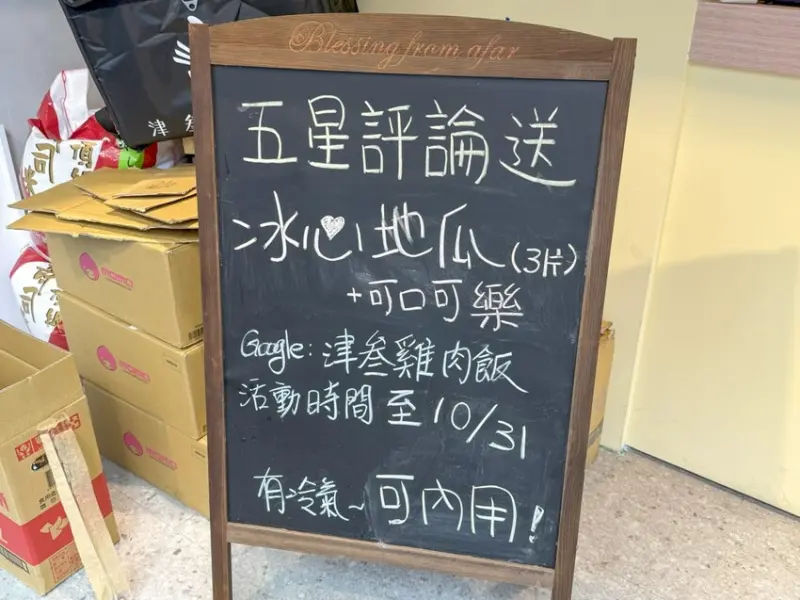 Blessing from afar
五星評論送
冰心地瓜(3片)
+可口可樂
Google:津叁雞肉飯
活動時間至10/31
有冷氣~可內用!
津叁
momo
momo
momo